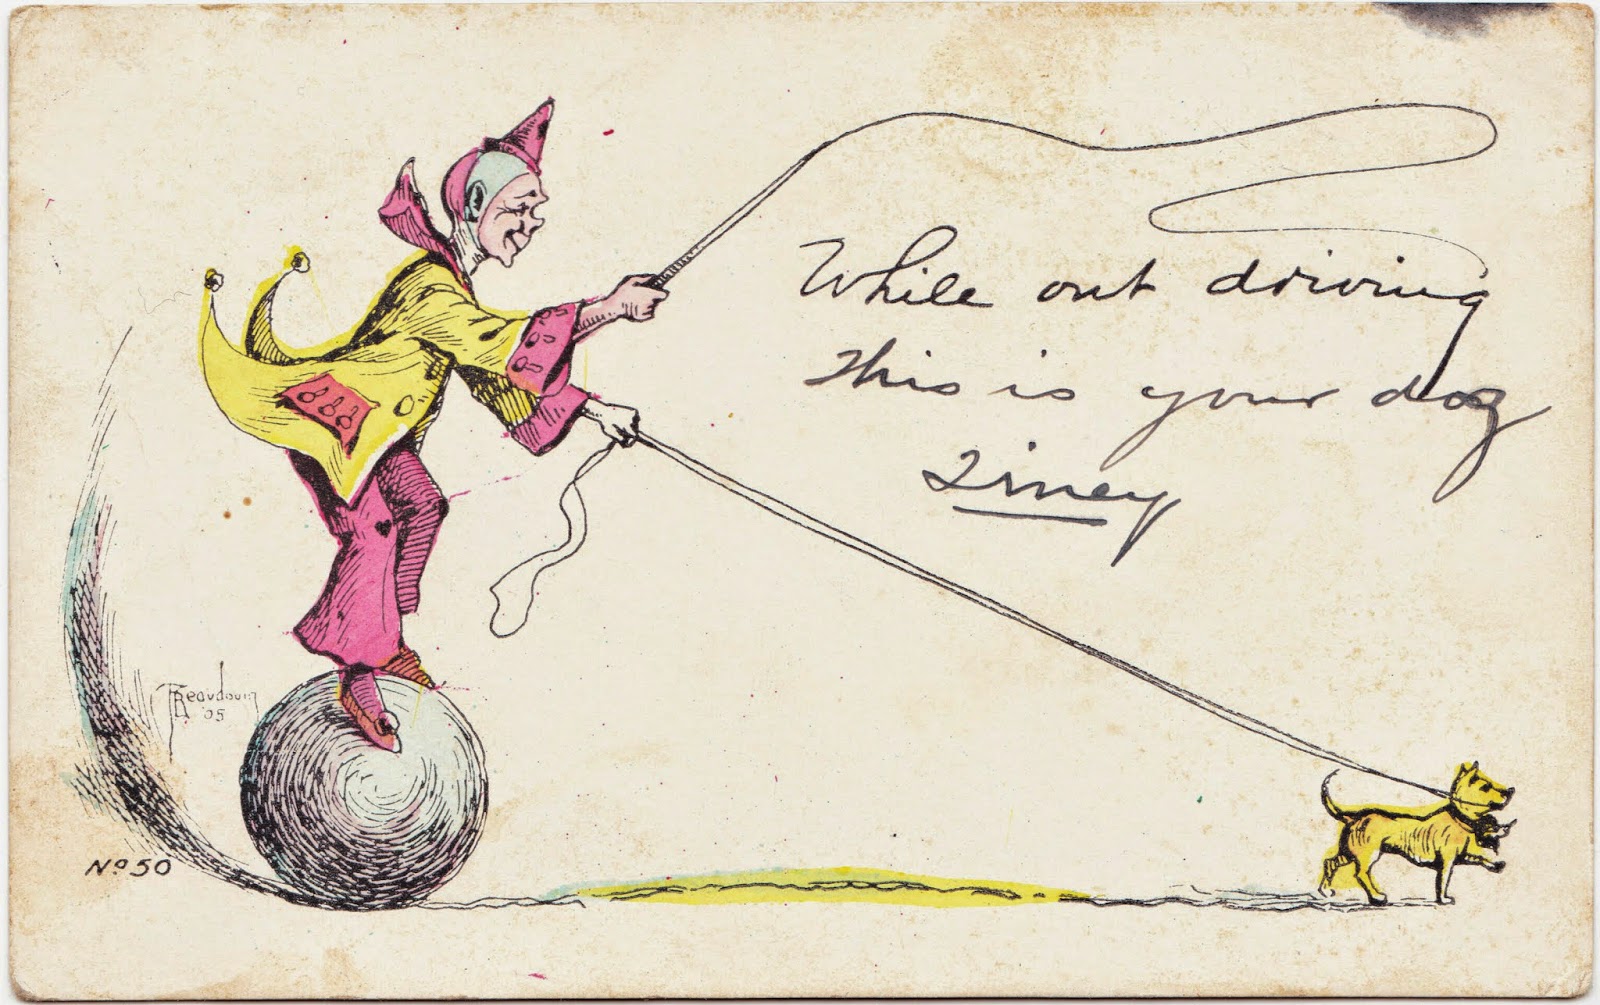 While out driving
this is your dog
Tiney
F Beaudouin
'05
No 50